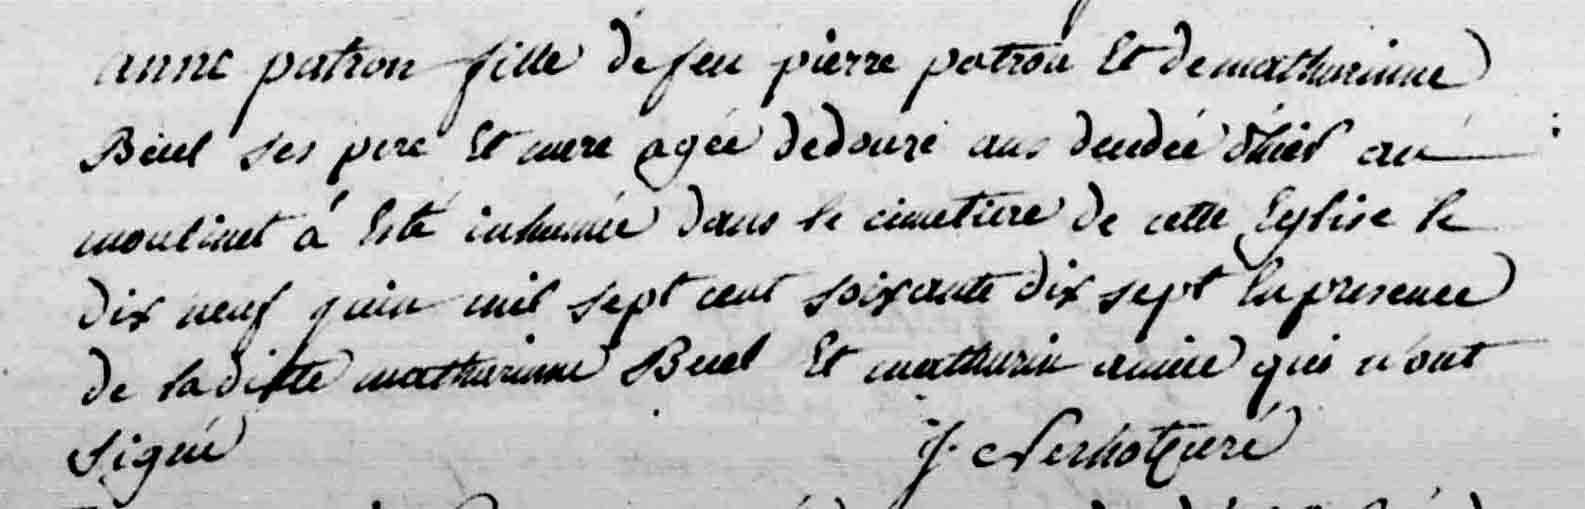 anne patron fille de feu pierre patron Et de mathurinne
Beurel ses pere Et mere agée de douze ans decedée d'hier au
moulinet à Esté inhumée dans le cimetiere de cette Eglise le
dix neuf juin mil sept cent soixante dix sept En presence
de la ditte mathurinne Et mathurin qui n'ont
signé J.